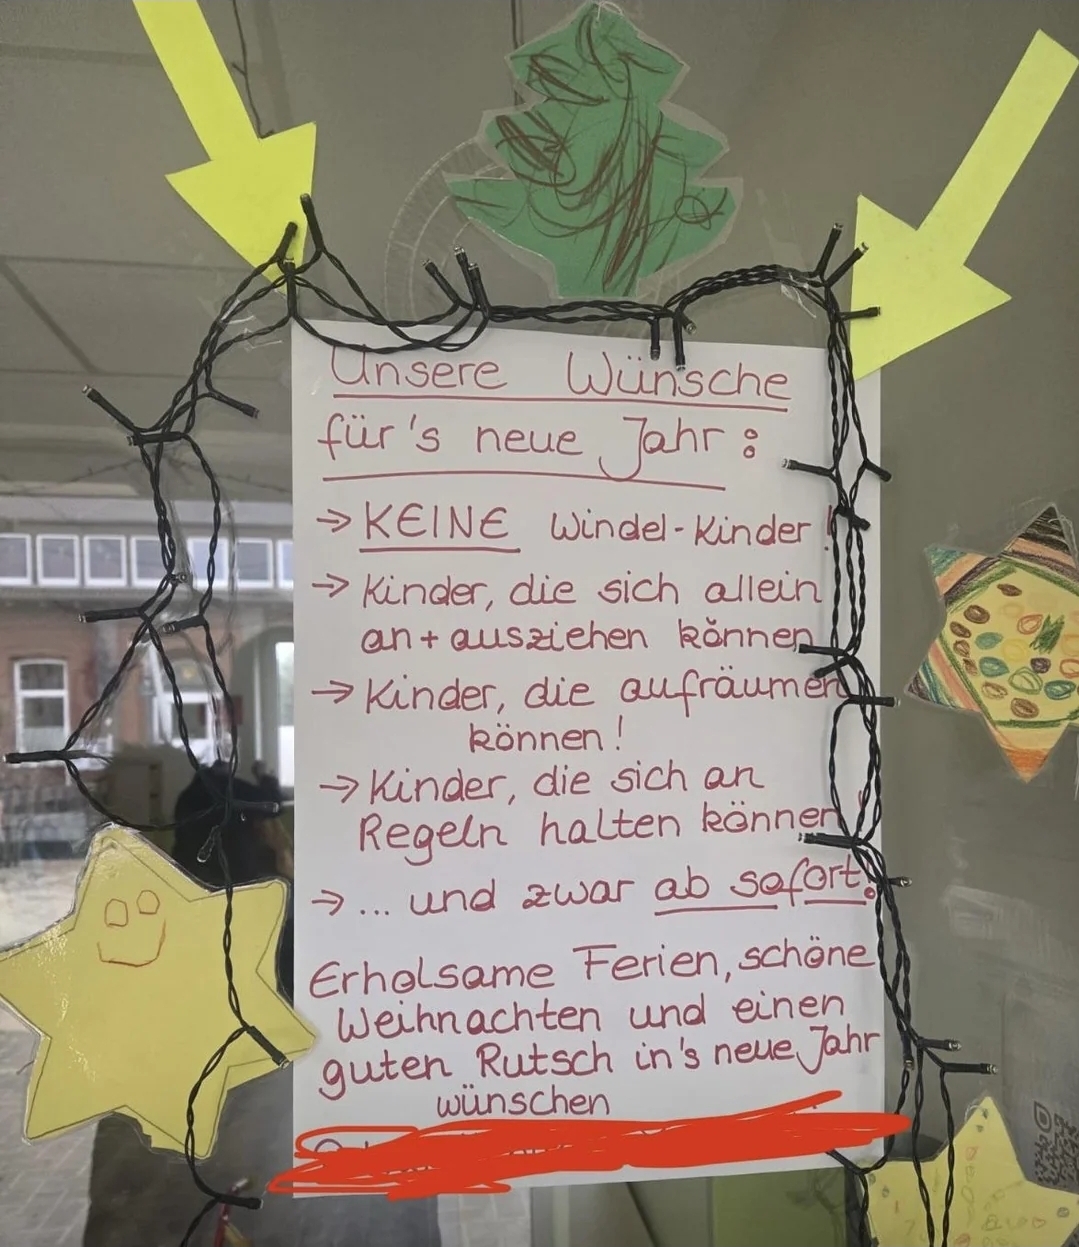 Unsere Wünsche
für's neue Jahr:
→ KEINE Windel-Kinder!
→ Kinder, die sich allein
an+ausziehen können
→ Kinder, die aufräumen
können!
→ Kinder, die sich an
Regeln halten können!
→ ... und zwar ab sofort!
Erholsame Ferien, schöne
Weihnachten und einen
guten Rutsch in's neue Jahr
wünschen